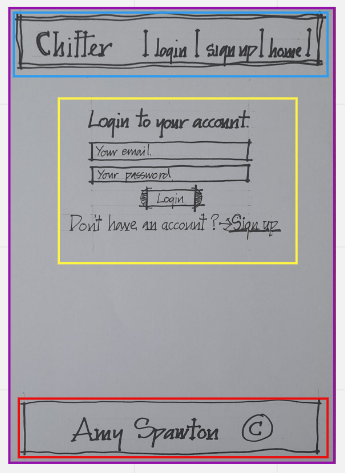 Chitter | login | sign up | home |
Login to your account.
Your email.
Your password.
Login
Don't have an account? → Sign up
Amy Spawton ©